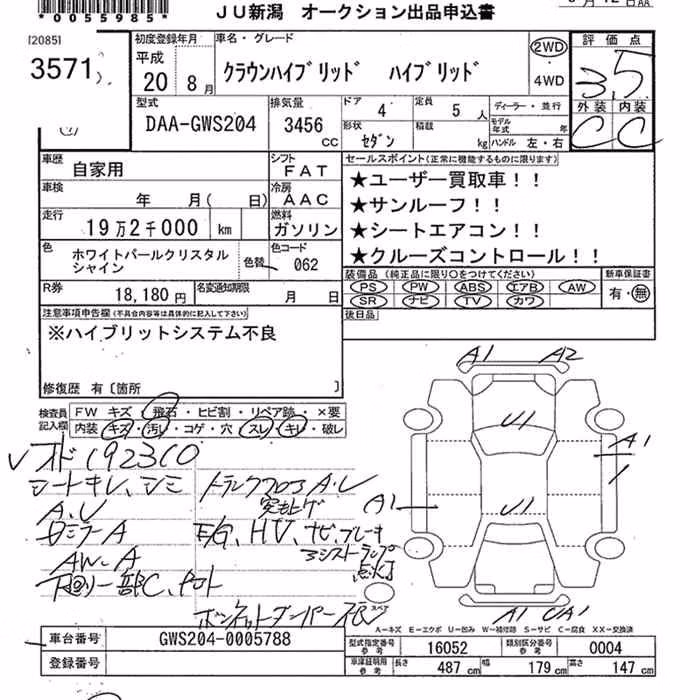 *0055985*
JU新潟 オークション出品申込書
[2085]
3571
初度登録年月
平成
20 8月
車名・グレード
クラウンハイブリッド ハイブリッド
2WD
・
4WD
評価点
3.5
外装 内装
C C
型式
DAA-GWS204
排気量
3456 cc
ドア 4
定員 5 人
形状 セダン
積載 kg
ディーラー・並行
モデル年式 年
ハンドル 左・右
車歴 自家用
シフト FAT
車検 年 月( 日)
冷房 AAC
走行 19万2千000 km
燃料 ガソリン
色 ホワイトパールクリスタルシャイン
色替
色コード 062
R券 18,180円
名変通知期限 月 日
セールスポイント(正常に機能するものに限ります)
★ユーザー買取車!!
★サンルーフ!!
★シートエアコン!!
★クルーズコントロール!!
装備品(純正品に限り○をつけてください)
PS PW ABS エアB AW
SR ナビ TV カワ
新車保証書
有・無
後日品
注意事項申告欄(不具合内容等は具体的に記入して下さい)
※ハイブリットシステム不良
修復歴 有〔箇所 〕
検査員記入欄
FW キズ・飛石・ヒビ割・リペア跡・×要
内装 キズ・汚レ・コゲ・穴・スレ・キレ・破レ
シートキレ、シミ
A.U
AW-A
トランクフロア A.U
E/G、HV、ナビ、ブレーキ
点灯
A1 A2
U1
A1
1
A1
U1
スペア
A1 UA1
A-キズ E-エクボ U-凹み W-補修跡 S-サビ C-腐食 XX-交換済
車台番号 GWS204-0005788
登録番号
型式指定番号 参考 16052
類別区分番号 参考 0004
車庫証明用 参考 長さ 487 cm 幅 179 cm 高さ 147 cm